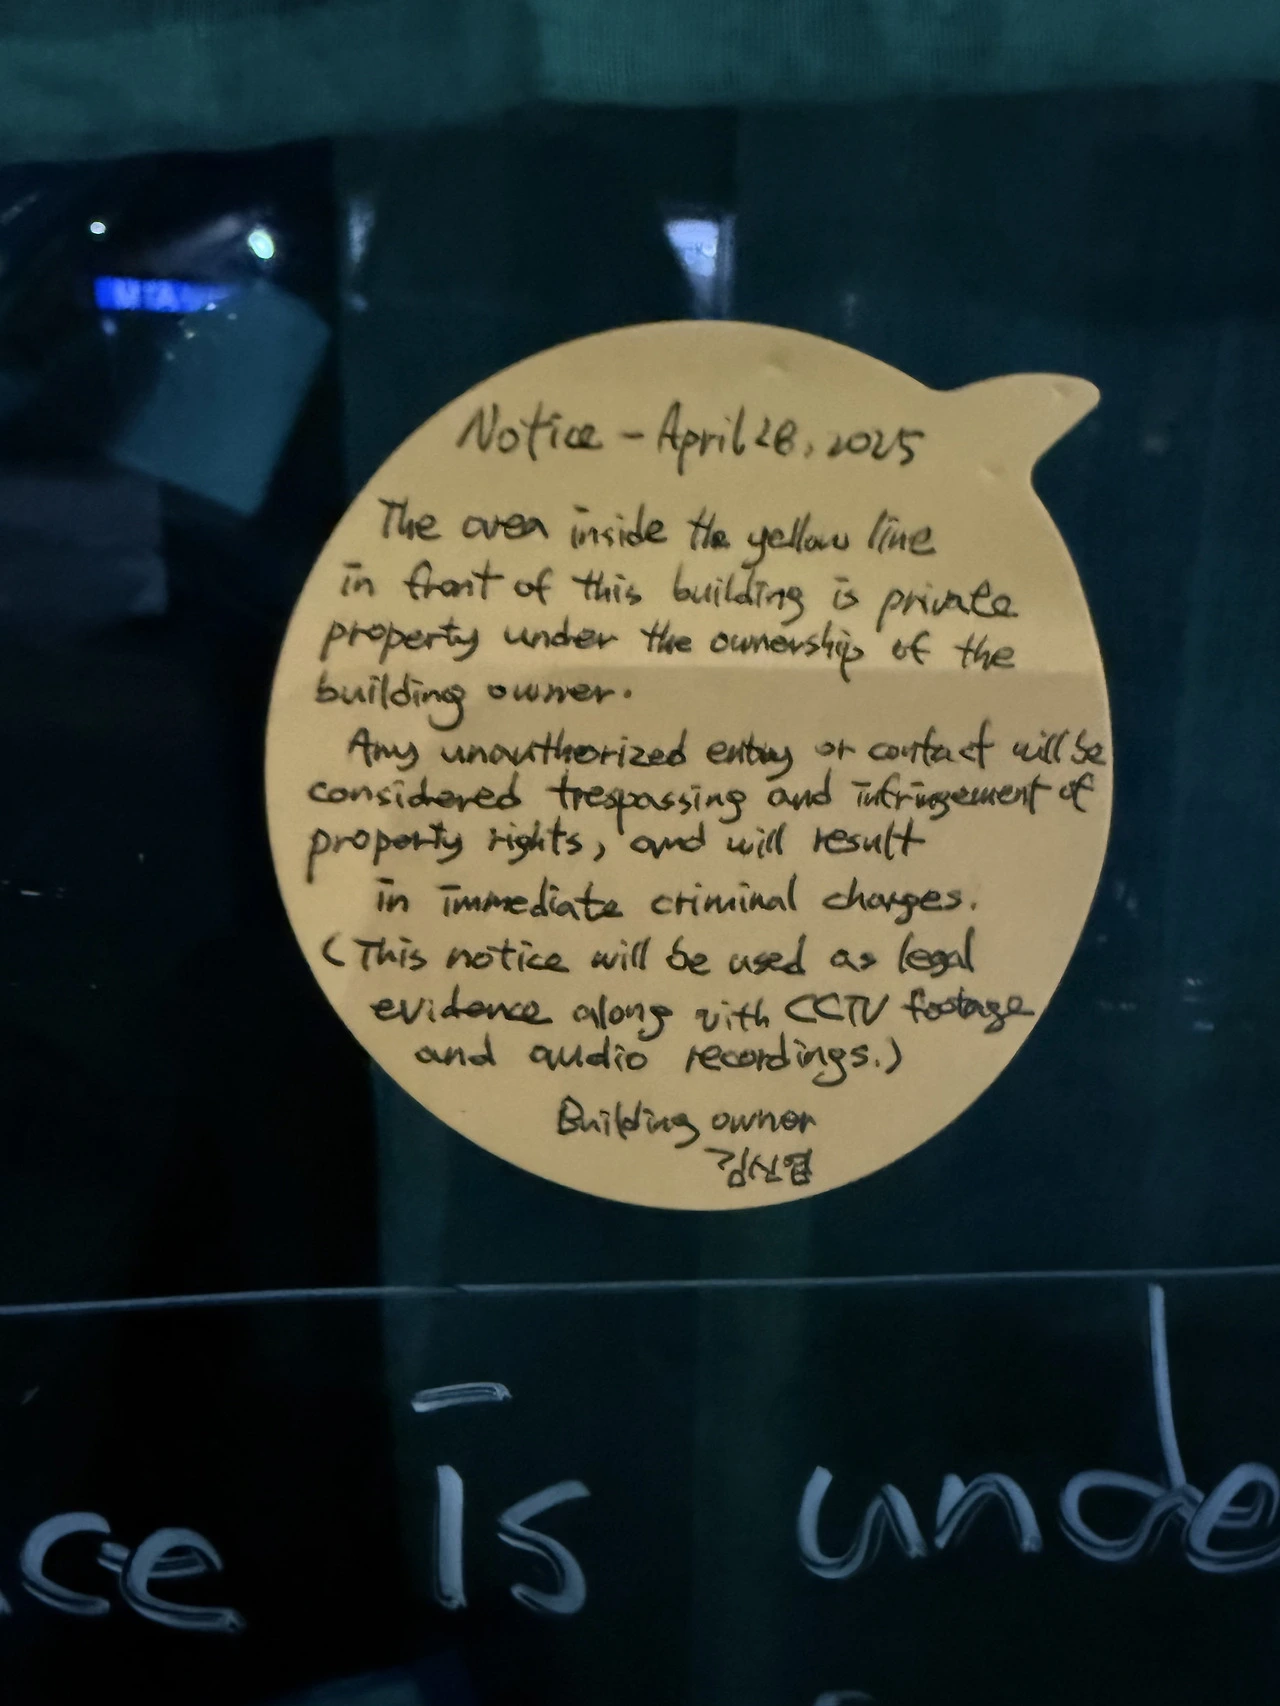 Notice - April 28, 2025
The area inside the yellow line
in front of this building is private
property under the ownership of the
building owner.
Any unauthorized entry or contact will be
considered trespassing and infringement of
property rights, and will result
in immediate criminal charges.
(This notice will be used as legal
evidence along with CCTV footage
and audio recordings.)
Building owner
김신엽
is unde